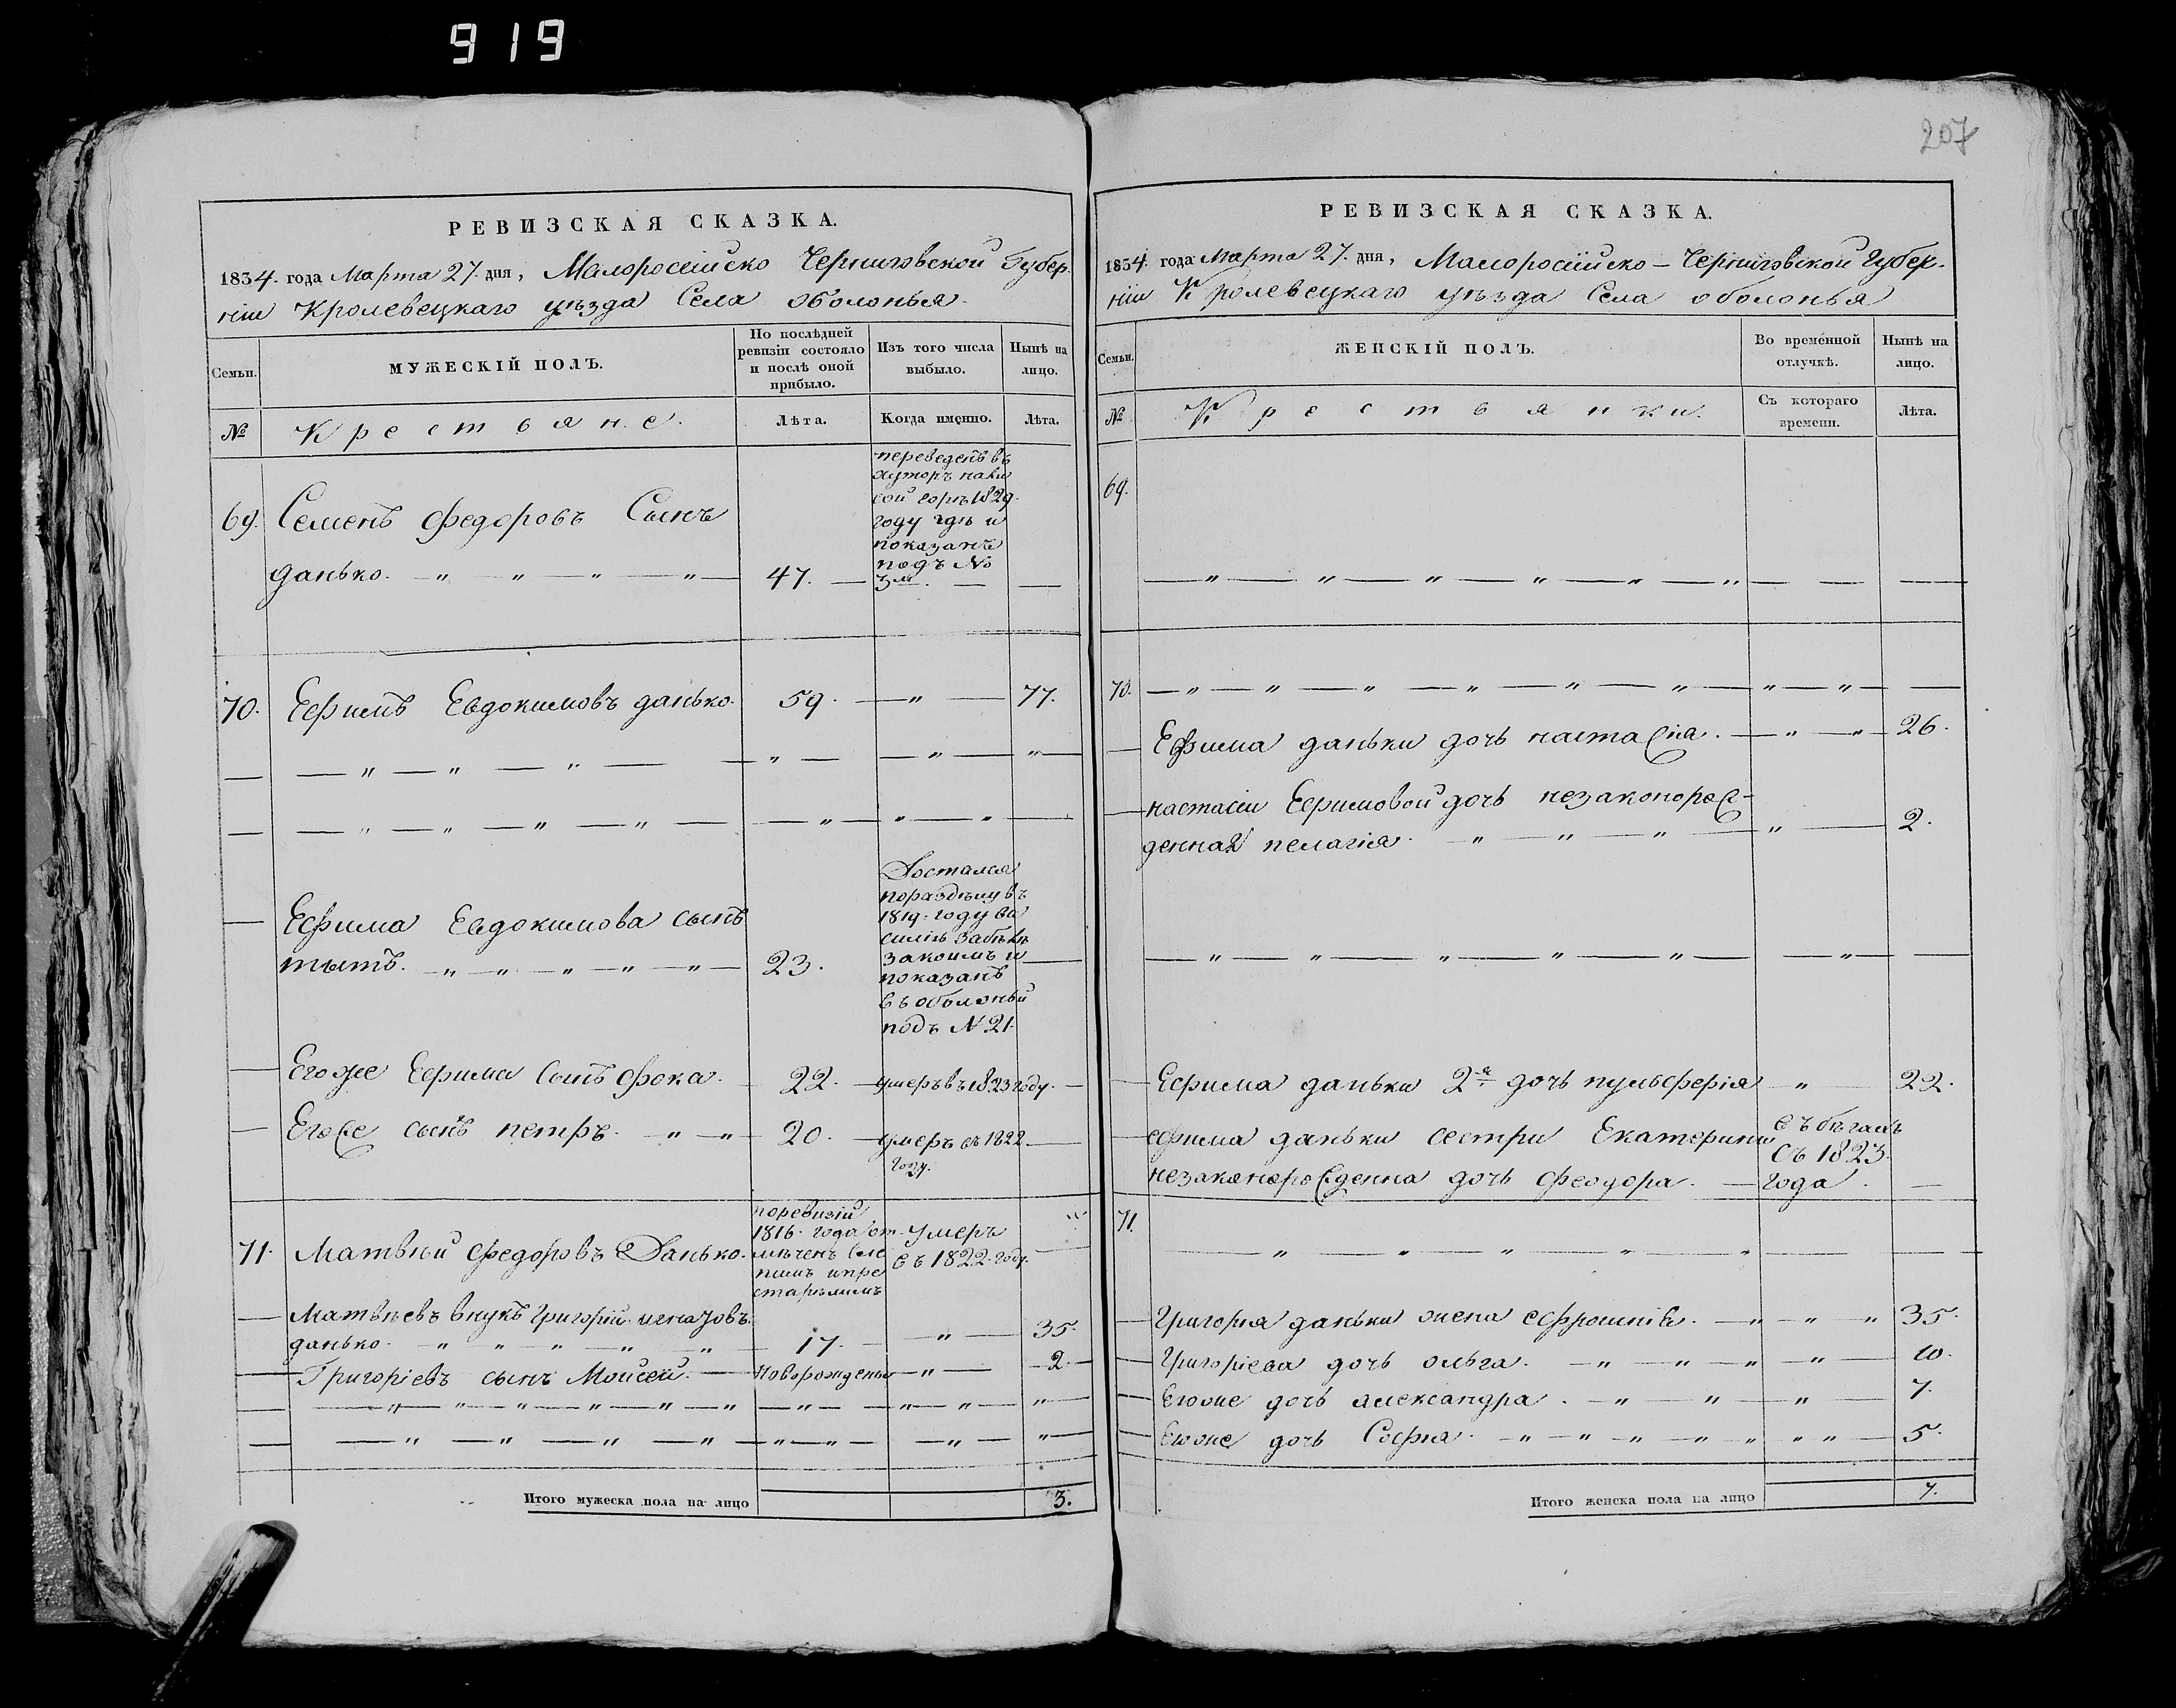 919
207
РЕВИЗСКАЯ СКАЗКА.
1834. года Марта 27. дня, Малоросіийско Черниговской Губер.
ніи Кролевецкаго уѣзда Села оболонья.
Семьи.
МУЖЕСКІЙ ПОЛЪ.
По послѣдней
ревизіи состояло
и послѣ оной
прибыло.
Изъ того числа
выбыло.
Нынѣ на
лицо.
№
Крестьяне.
Лѣта.
Когда именно.
Лѣта.
69. Семенъ федоровъ Сынъ
данько. — " — " — " — " — 47. —
переведенъ въ
хуторъ
1829.
году гдѣ и
показанъ
подъ №
3м. —
70. Ефимъ Евдокимовъ данько. 59. — " — 77.
Ефима Евдокимова сынъ
титъ. — " — " — " — " — " — 23.
Достался
поразделу въ
1819. году Ва
силію
закоимъ и
показанъ
въ оболоньи
подъ № 21.
Егоже Ефима Сынъ фока. 22. — умеръ въ 1823 году. —
Егоже сынъ петръ. — " — " — 20. — умеръ въ 1822
году.
71. Матвѣй Федоровъ Данько.
поревизіи
1816. года от
мѣченъ Сле
пымъ ипре
старѣлымъ
умеръ
въ 1822. году.
Матвѣевъ внукъ Григорій игнатовъ
данько. — " — " — " — " — " — 17. — " — 35.
Григоріевъ сынъ Моисей. — Новорожденъ — " — 2. —
Итого мужеска пола на лицо 3.
РЕВИЗСКАЯ СКАЗКА.
1834. года Марта 27. дня, Малоросіийско – Черниговской Губер-
ніи Кролевецкаго уѣзда Села оболонья
Семьи.
ЖЕНСКІЙ ПОЛЪ.
Во времéнной
отлучкѣ.
Нынѣ на
лицо.
№
Крестьянки.
Съ котораго
времени.
Лѣта.
69.
70.
Ефима даньки дочь настасіа. — " — " — 26.
настасіи Ефимовой дочь незаконорож-
денная пелагіа. — " — " — " — " — 2.
Ефима даньки 2я. дочь пульхферіа — " — 22.
ефима даньки сестри Екатерини
незаконорожденна дочь Феодора. —
въ бѣгахъ
съ 1823.
года. —
71.
Григориа даньки жена ефросиніа. — " — " — " 35.
Григоріева дочь ольга. — " — " — " — " — 10.
Егоже дочь александра. — " — " — " — 7.
Егоже дочь Софиа. — " — " — " — " — " — 5.
Итого женска пола на лицо 7.